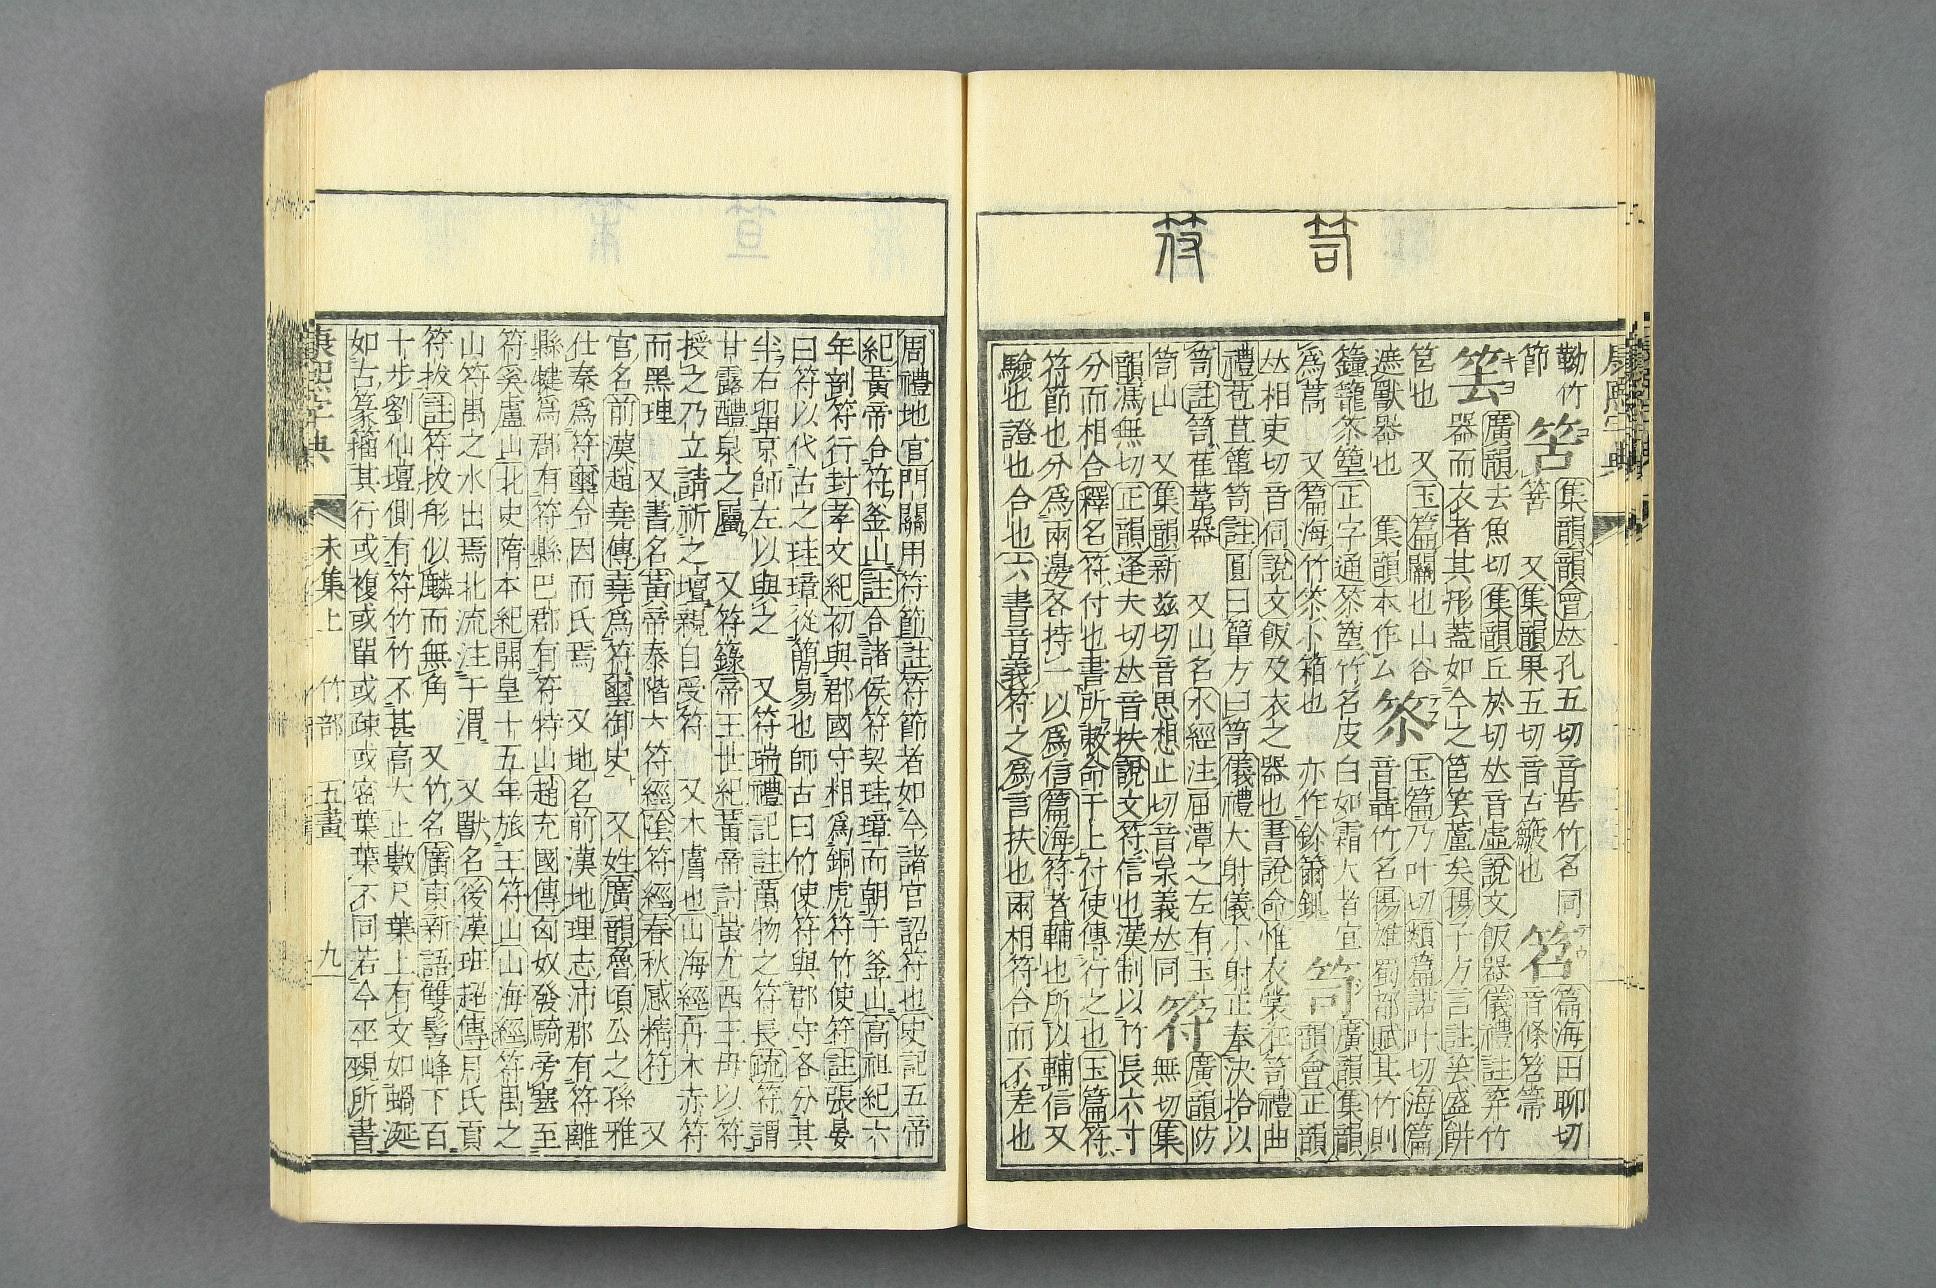 笴 符
康熙字典
勒竹 笘 集韻韻會𠀤孔五切音苦竹名同 笤 篇海田聊切
節 箁 又集韻果五切音古籢也 音條笤箒
筀 キヨ 廣韻去魚切集韻丘於切𠀤音虛說文飯器儀禮註筓竹
器而衣者其形蓋如今之筥筀蘆矣揚子方言註筀盛餅
筥也 又玉篇䦥也山谷 玉篇乃叶切類篇諾叶切海篇
遮獸器也 集韻本作厶 笭 音聶竹名揚雄蜀都賦其竹則
鐘龍笭篁正字通笭篁竹名皮白如霜大者宜 笥 廣韻集韻
爲蒿 又篇海竹笭小箱也 亦作鈴 韻會正韻
𠀤相吏切音伺說文飯及衣之器也書說命惟衣裳在笥禮曲
禮苞苴簞笥註圓曰簞方曰笥儀禮大射儀小射正奉決拾以
笥註笥萑葦器 又山名水經注屈潭之左有玉
笥山 又集韻新茲切音思想止切音枲義𠀤同 符 廣韻防無切集
韻馮無切正韻逢夫切𠀤音扶說文符信也漢制以竹長六寸
分而相合釋名符付也書所敕命于上付使傳行之也玉篇符
符節也分爲兩邊各持一以爲信篇海符者輔也所以輔信又
驗也證也合也六書音義符之爲言扶也兩相符合而不差也
周禮地官門關用符節註符節者如今諸官詔符也史記五帝
紀黃帝合符釜山註合諸侯符契珪璋而朝于釜山高祖紀六
年剖符行封孝文紀初與郡國守相爲銅虎符竹使符註張晏
曰符以代古之珪璋從簡易也師古曰竹使符與郡守各分其
半右留京師左以與之 又符瑞禮記註萬物之符長疏符謂
甘露醴泉之屬 又符籙帝王世紀黃帝討蚩尤西王母以符
授之乃立請祈之壇親自受符 又木膚也山海經丹木赤符
而黑理 又書名黃帝泰階六符經陰符經春秋感精符 又
官名前漢趙堯傳堯爲符璽御史 又姓廣韻魯頃公之孫雅
仕秦爲符璽令因而氏焉 又地名前漢地理志沛郡有符離
縣犍爲郡有符縣巴郡有符特山趙充國傳匈奴發騎旁塞至
符奚盧山北史隋本紀開皇十五年旅王符山山海經符禺之
山符禺之水出焉北流注于渭 又獸名後漢班超傳月氏貢
符拔註符拔形似麟而無角 又竹名廣東新語雙髻峰下百
十步劉仙壇側有符竹竹不甚高大止數尺葉上有文如蝸涎
如古篆籀其行或複或單或疎或密葉葉不同若今巫覡所書
康熙字典 未集上 竹部 五畫 九